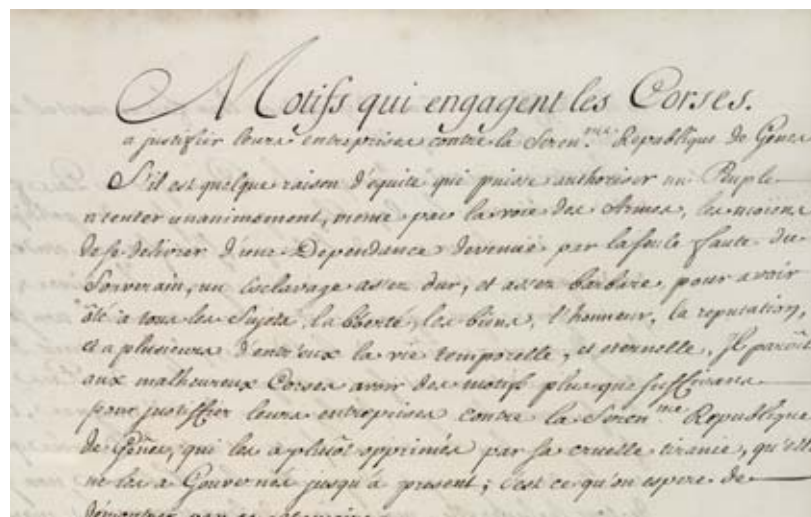 Motifs qui engagent les Corses.
a justifier leurs entreprises contre la Seren.me Republique de Genes
S'il est quelque raison d'equite qui puisse authoriser un Peuple
a tenter unanimement, meme par la voie des Armes, les moiens
de se delivrer d'une Dependance devenuë par la seule faute du
Souverain, un Esclavage assez dur, et assez barbare, pour avoir
ôté à tous les Sujets la liberté, les biens, l'honneur, la reputation,
et a plusieurs d'entr'eux la vie temporelle, et eternelle, Il paroît
aux malheureux Corses avoir des motifs plus que suffisans
pour justiffier leurs entreprises contre la Seren.me Republique
de Gênes, qui les a plutôt opprimés par sa cruelle tiranie, qu'elle
ne les a Gouvernés jusqu'à present; c'est ce qu'on espere de